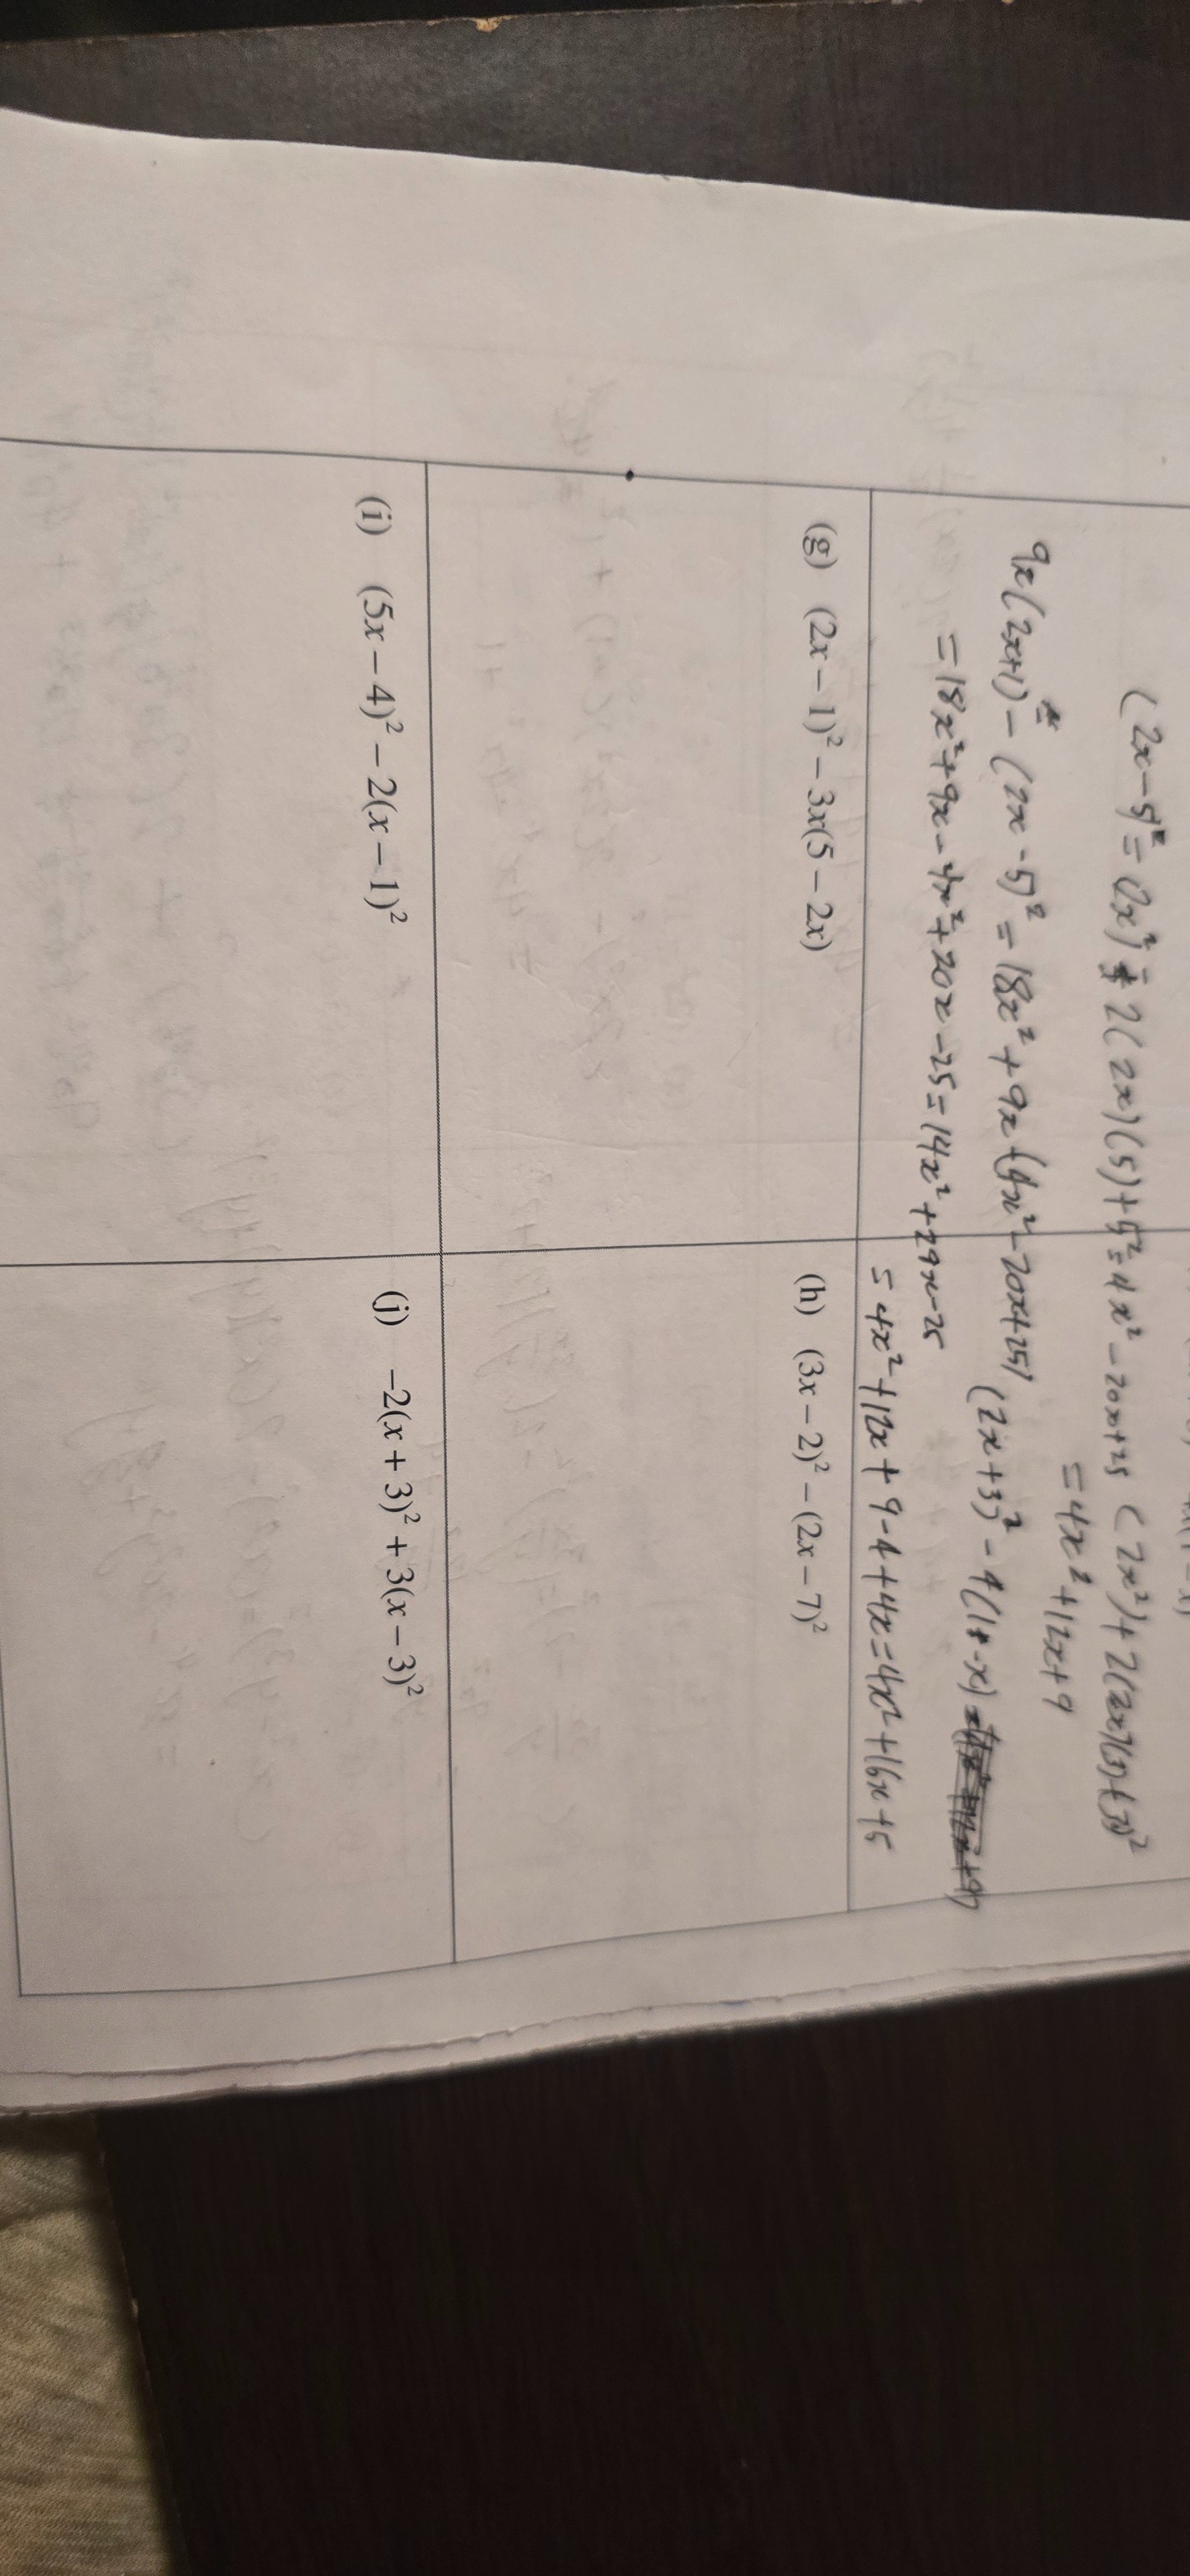 (2x-5)² = (2x)² - 2(2x)(5)+5² = 4x² - 20x+25
9x(2x+1) - (2x-5)² = 18x² + 9x - (4x² - 20x+25)
= 18x² + 9x - 4x² + 20x - 25 = 14x² + 29x - 25
(2x²) + 2(2x)(3) + (3)²
= 4x² + 12x + 9
(2x+3)² - 4(1-x)
= 4x² + 12x + 9 - 4 + 4x = 4x² + 16x + 5
(g) (2x − 1)² − 3x(5 − 2x)
(h) (3x − 2)² − (2x − 7)²
(i) (5x − 4)² − 2(x − 1)²
(j) −2(x + 3)² + 3(x − 3)²